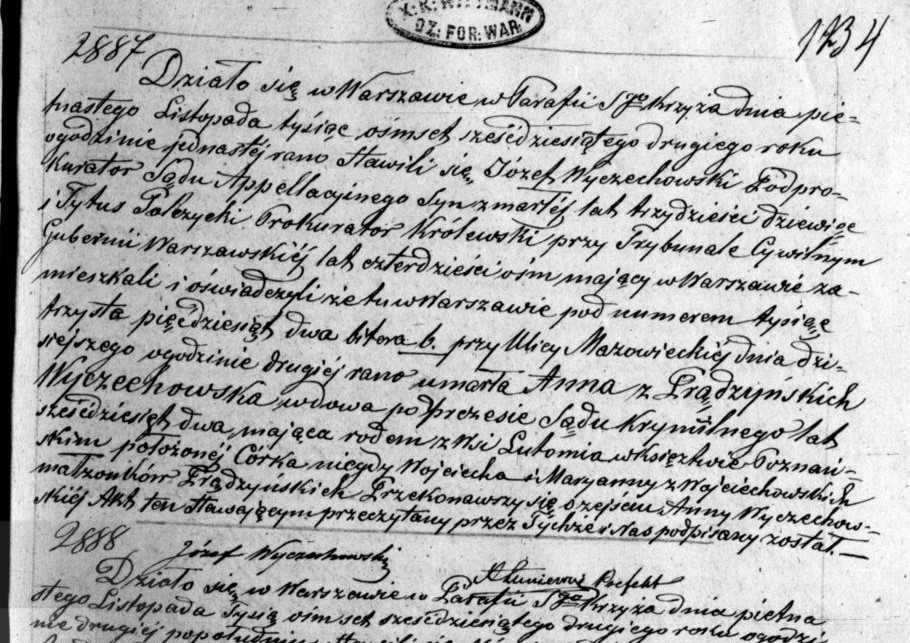 DZ: FOR: WAR.
1234
2887
Działo się w Warszawie w Parafii Sgo Krzyża dnia pię-
tnastego Listopada tysiąc ośmset sześćdziesiątego drugiego roku
ogodzinie jednastéj rano Stawili się, Józef Wyczechowski Podpro-
kurator Sądu Appellacyjnego Syn zmarłéj lat trzydzieści dziewięć
i Tytus Palczycki Prokurator Królewski przy Trybunale Cywilnym
Gubernii Warszawskiéj lat czterdzieści ośm mający w Warszawie za-
mieszkali i oświadczyli że tu w Warszawie pod numerem tysiąc
trzysta pięćdziesiąt dwa litera b. przy Ulicy Mazowieckiéj dnia dzi-
siejszego ogodzinie drugiéj rano umarła Anna z Prądzyńskich
Wyczechowska wdowa po Prezesie Sądu Kryminalnego lat
sześćdziesiąt dwa mająca rodem z Wsi Lutomia w księztwie Poznań-
skim położonéj Córka niegdy Wojciecha i Maryanny z Wojciechowskich
małżonków Prądzyńskich Przekonawszy się o zejściu Anny Wyczechow-
skiéj Akt ten Stawającym przeczytany przez Tychże i Nas podpisany został.
Józef Wyczechowski
Prefekt
2888
Działo się w Warszawie w Parafii Sgo Krzyża dnia piętna
stego Listopada tysiąc ośmset sześćdziesiątego drugiego roku
nie drugiéj popołudniu